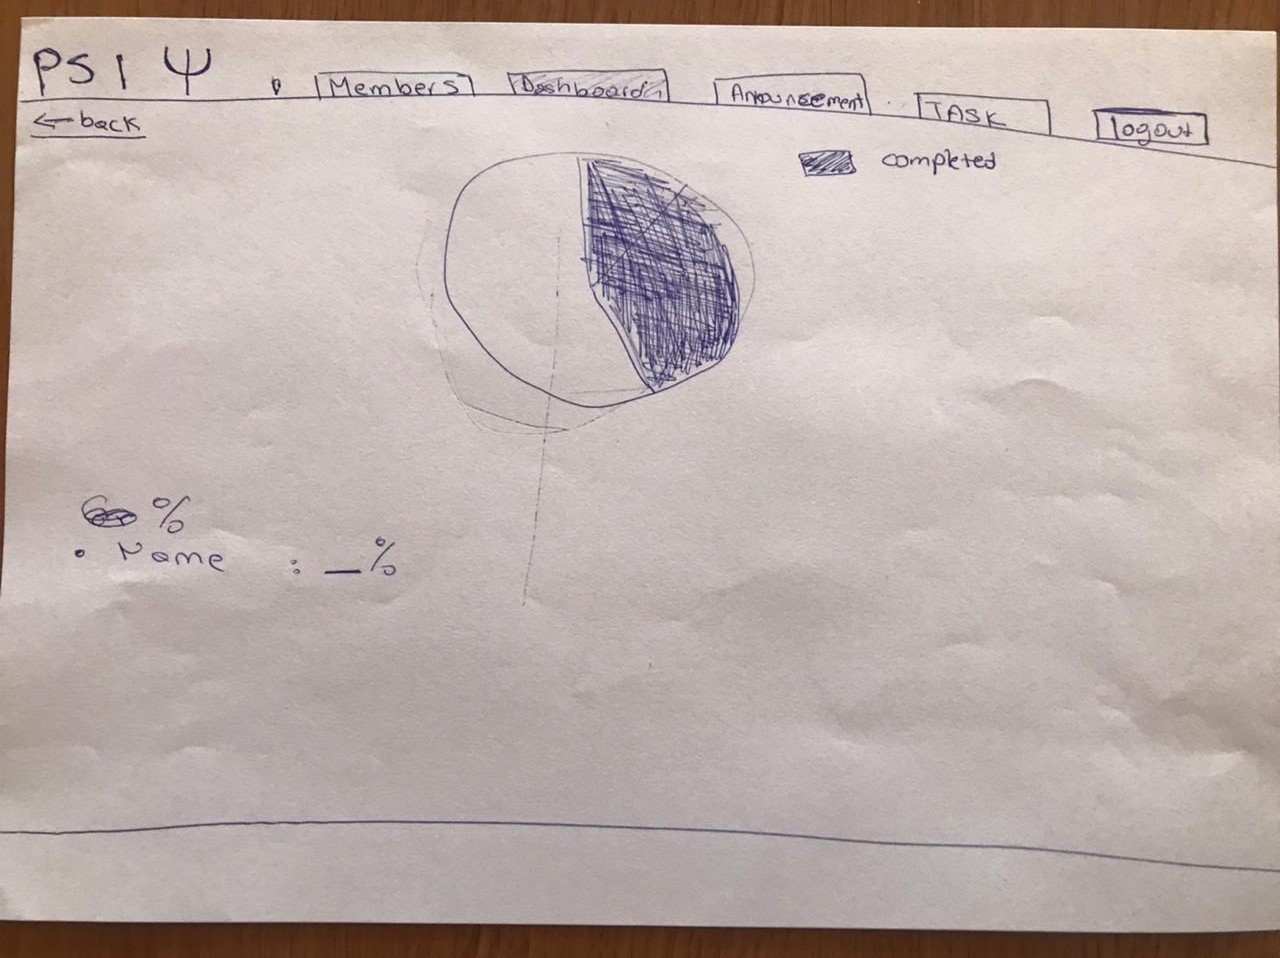 PSI Ψ
Members
Dashboard
Announcement
TASK
logout
← back
completed
%
• Name : _%